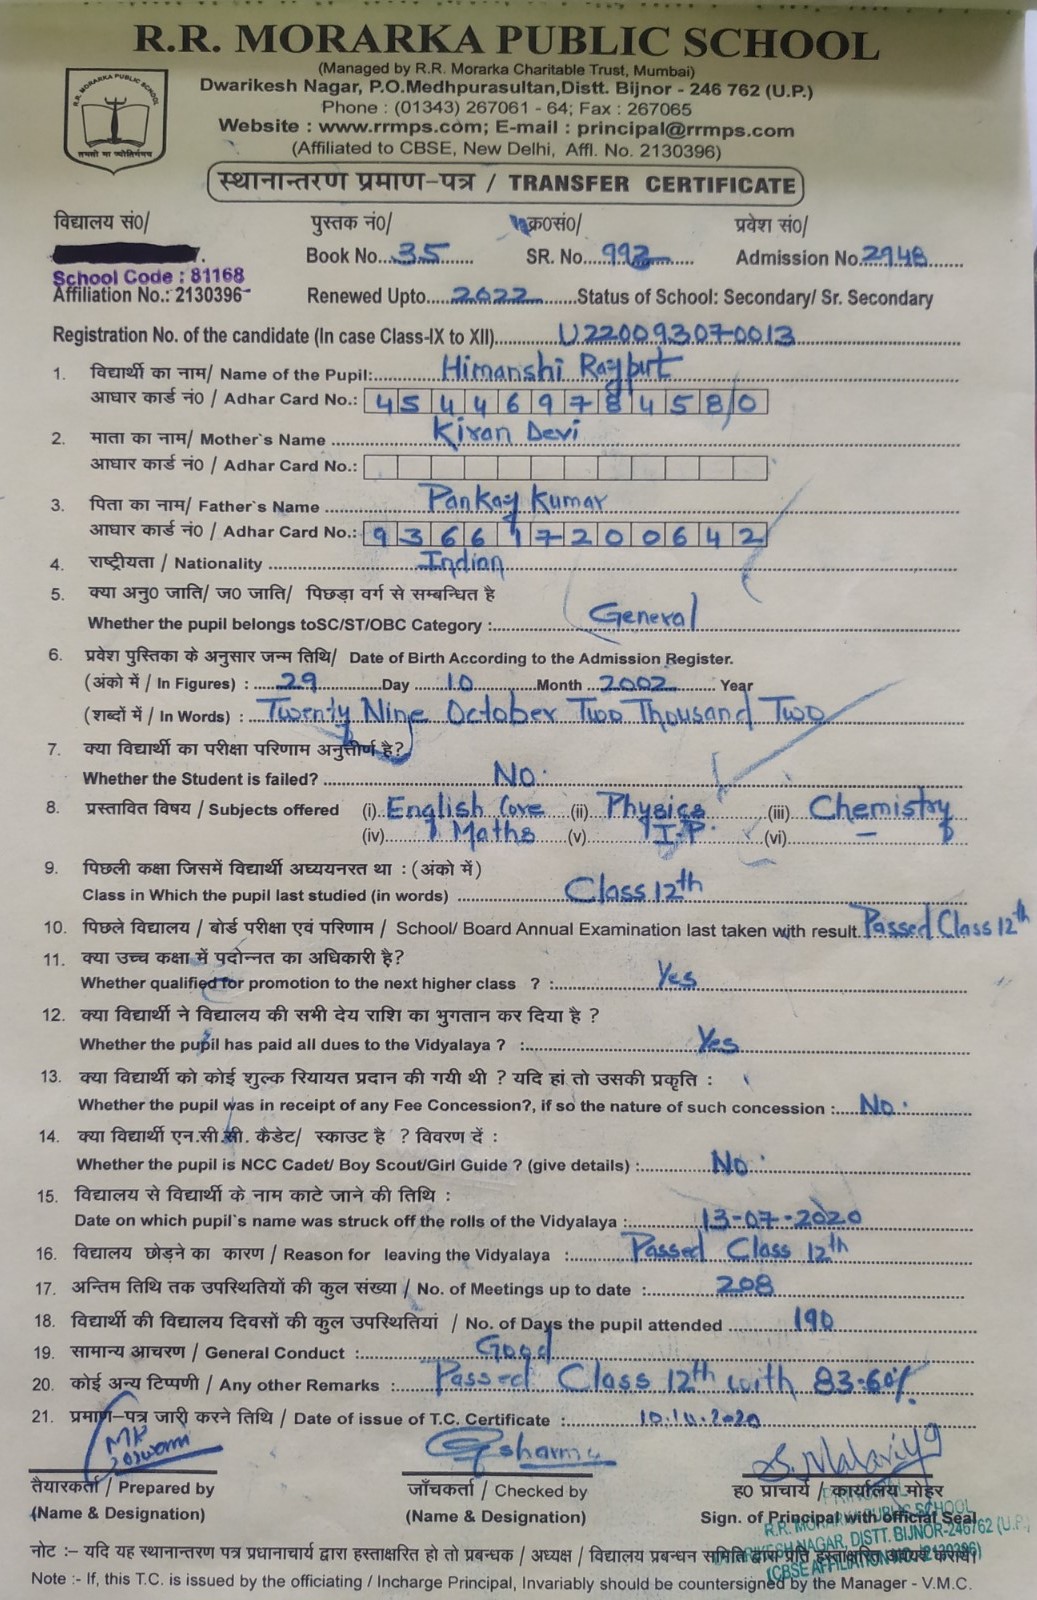 R.R. MORARKA PUBLIC SCHOOL
(Managed by R.R. Morarka Charitable Trust, Mumbai)
Dwarikesh Nagar, P.O.Medhpurasultan,Distt. Bijnor - 246 762 (U.P.)
Phone : (01343) 267061 - 64; Fax : 267065
Website : www.rrmps.com; E-mail : principal@rrmps.com
(Affiliated to CBSE, New Delhi, Affl. No. 2130396)
R.R. MORARKA PUBLIC SCHOOL
तमसो मा ज्योतिर्गमय
स्थानान्तरण प्रमाण-पत्र / TRANSFER CERTIFICATE
विद्यालय सं0/ पुस्तक नं0/ क्र0सं0/ प्रवेश सं0/
Book No. 35 SR. No. 992 Admission No. 2948
School Code : 81168
Affiliation No.: 2130396 Renewed Upto 2022 Status of School: Secondary/ Sr. Secondary
Registration No. of the candidate (In case Class-IX to XII) U220093070013
1. विद्यार्थी का नाम/ Name of the Pupil: Himanshi Rajput
आधार कार्ड नं0 / Adhar Card No.: 4 5 4 4 6 9 7 8 4 5 8 0
2. माता का नाम/ Mother`s Name Kiran Devi
आधार कार्ड नं0 / Adhar Card No.:
3. पिता का नाम/ Father`s Name Pankaj Kumar
आधार कार्ड नं0 / Adhar Card No.: 9 3 6 6 1 7 2 0 0 6 4 2
4. राष्ट्रीयता / Nationality Indian
5. क्या अनु0 जाति/ ज0 जाति/ पिछड़ा वर्ग से सम्बन्धित है
Whether the pupil belongs toSC/ST/OBC Category : General
6. प्रवेश पुस्तिका के अनुसार जन्म तिथि/ Date of Birth According to the Admission Register.
(अंको में / In Figures) : 29 Day 10 Month 2002 Year
(शब्दों में / In Words) : Twenty Nine October Two Thousand Two
7. क्या विद्यार्थी का परीक्षा परिणाम अनुत्तीर्ण है?
Whether the Student is failed? No.
8. प्रस्तावित विषय / Subjects offered (i) English Core (ii) Physics (iii) Chemistry
(iv) Maths (v) I.P. (vi) —
9. पिछली कक्षा जिसमें विद्यार्थी अध्ययनरत था : (अंको में)
Class in Which the pupil last studied (in words) Class 12th
10. पिछले विद्यालय / बोर्ड परीक्षा एवं परिणाम / School/ Board Annual Examination last taken with result. Passed Class 12th
11. क्या उच्च कक्षा में पदोन्नत का अधिकारी है?
Whether qualified for promotion to the next higher class ? : Yes
12. क्या विद्यार्थी ने विद्यालय की सभी देय राशि का भुगतान कर दिया है ?
Whether the pupil has paid all dues to the Vidyalaya ? : Yes
13. क्या विद्यार्थी को कोई शुल्क रियायत प्रदान की गयी थी ? यदि हां तो उसकी प्रकृति :
Whether the pupil was in receipt of any Fee Concession?, if so the nature of such concession : No.
14. क्या विद्यार्थी एन.सी.सी. कैडेट/ स्काउट है ? विवरण दें :
Whether the pupil is NCC Cadet/ Boy Scout/Girl Guide ? (give details) : No.
15. विद्यालय से विद्यार्थी के नाम काटे जाने की तिथि :
Date on which pupil`s name was struck off the rolls of the Vidyalaya : 13-07-2020
16. विद्यालय छोड़ने का कारण / Reason for leaving the Vidyalaya : Passed Class 12th
17. अन्तिम तिथि तक उपस्थितियों की कुल संख्या / No. of Meetings up to date : 208
18. विद्यार्थी की विद्यालय दिवसों की कुल उपस्थितियां / No. of Days the pupil attended 190
19. सामान्य आचरण / General Conduct : Good
20. कोई अन्य टिप्पणी / Any other Remarks : Passed Class 12th with 83.60%.
21. प्रमाण-पत्र जारी करने तिथि / Date of issue of T.C. Certificate :
तैयारकर्ता / Prepared by जाँचकर्ता / Checked by ह0 प्राचार्य / कार्यालय मोहर
(Name & Designation) (Name & Designation) Sign. of Principal with official Seal
PRINCIPAL
R.R. MORARKA PUBLIC SCHOOL
DWARIKESH NAGAR, DISTT. BIJNOR-246762 (U.P.)
नोट :– यदि यह स्थानान्तरण पत्र प्रधानाचार्य द्वारा हस्ताक्षरित हो तो प्रबन्धक / अध्यक्ष / विद्यालय प्रबन्धन समिति द्वारा प्रति हस्ताक्षरित अवश्य करायें।
Note :- If, this T.C. is issued by the officiating / Incharge Principal, Invariably should be countersigned by the Manager - V.M.C.